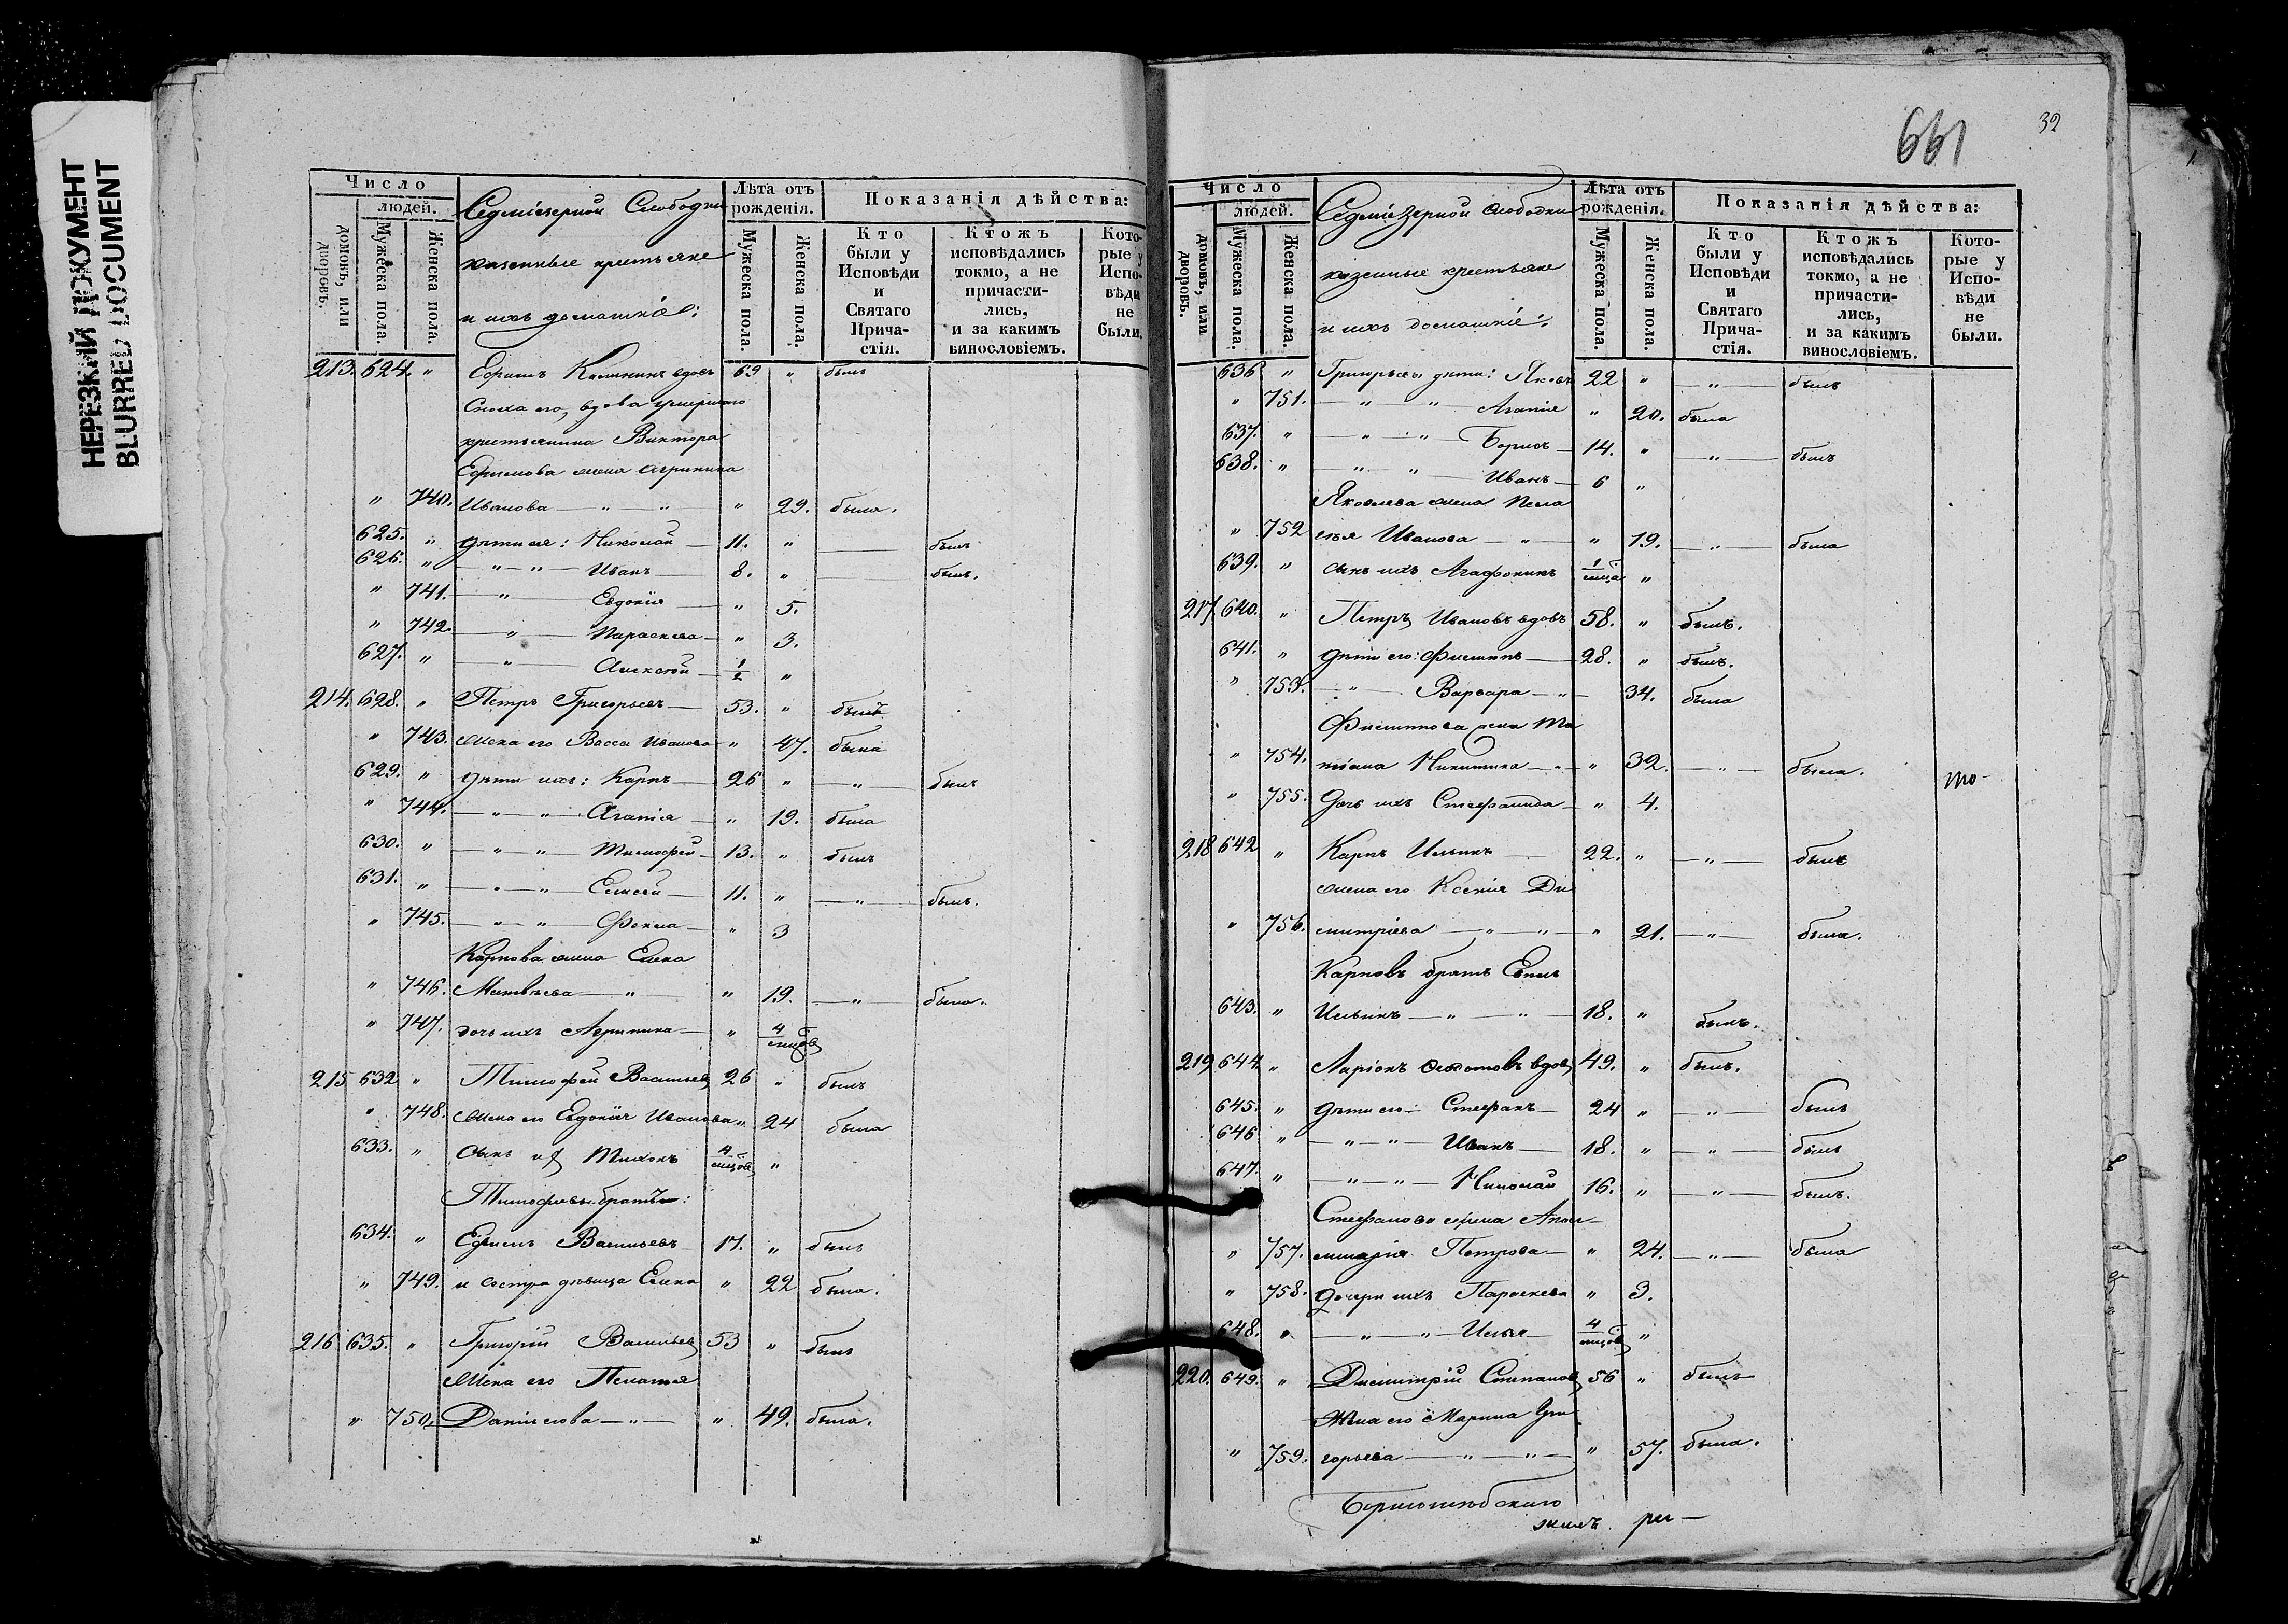 НЕРЕЗКИЙ ДОКУМЕНТ
BLURRED DOCUMENT
Число
людей.
домовъ, или дворовъ.
Мужеска пола.
Женска пола.
Седміезерной Слободки
казенные крестьяне
и ихъ домашніе:
Лѣта отъ рожденія.
Мужеска пола.
Женска пола.
Показанія дѣйства:
Кто были у Исповѣди и Святаго Прича-стія.
Ктожъ исповѣдались токмо, а не причасти-лись, и за какимъ винословіемъ.
Кото-рые у Испо-вѣди не были.
213. 624. " Ефимъ Калининъ вдовъ 69 " былъ
Сноха его, вдова умершаго
крестьянина Виктора
Ефимова жена Агрипина
" 740. Иванова — " — " " 29. была.
625. " дѣти ея: Николай — 11. " — былъ
626. " — " — " — Иванъ 8. " — былъ.
" 741. — " — Евдокія — " 5.
" 742. — " — Параскева — " 3.
627. " — " — Алексѣй — 1/2 "
214. 628. " Петръ Григорьевъ — 53. " былъ
" 743. жена его Васса Иванова " 47. была
629. " дѣти ихъ: Карпъ — 26 " — " — былъ
" 744. — " — " — Агапія — " 19. была
630. " — " — " — Тимофей — 13. " былъ
631. " — " — " — Елисей — 11. " — " — былъ.
" 745. — " — " — Фекла — " 3
Карпова жена Елена
" 746. Матвѣева — " — " 19. — " — была.
" 747. дочь ихъ Агрипина — " 4 мцов
215 632 " Тимофей Васильев 26 " былъ
" 748. жена его Евдокія Иванова " 24 была
633. " Сынъ их Тихонъ 4 мцов "
Тимофеевы братья:
634. " Ефимъ Васильевъ 17. " былъ
" 749. и сестра дѣвица Елена " 22 была.
216 635. " Григорій Васильев 53 " былъ
Жена его Пелагея
" 750. Данилова — " — " 49. была.
661
32
Число
людей.
домовъ, или дворовъ.
Мужеска пола.
Женска пола.
Седміезерной Слободки
казенные крестьяне
и ихъ домашніе:
Лѣта отъ рожденія.
Мужеска пола.
Женска пола.
Показанія дѣйства:
Кто были у Исповѣди и Святаго Прича-стія.
Ктожъ исповѣдались токмо, а не причасти-лись, и за какимъ винословіемъ.
Кото-рые у Испо-вѣди не были.
636 " Григорьевы дѣти: Яковъ 22 " — " — былъ
" 751. — " — " — Агапія " 20. была
637. " — " — " — Борисъ — 14. " — " — былъ
638. " — " — " — Иванъ — 6 "
Яковлева жена Пела
" 752 гѣя Иванова — " — " 19. — " — была
639. " сынъ ихъ Агафоникъ 1 мца "
217 640. " Петръ Ивановъ вдовъ 58. " былъ.
641. " дѣти его: Филипъ — 28. " былъ.
" 753. — " — Варвара — " — 34. была
Филиппова жена Та
" 754. тіана Никитина — " — " 32. — " — была.
" 755. дочь ихъ Стефанида — " 4.
218 642 " Карпъ Ильинъ 22. " — " — былъ
жена его Ксенія Ди
" 756. митріева — " — " — " 21. — " — была.
Карповъ братъ
643. " Ильинъ — " — " — 18. " былъ.
219 644. " Ларіонъ вдов 49. " былъ.
645. " дѣти его: Стефанъ — 24 " — " — былъ
646 " — " — " — Иванъ — 18. " — " — былъ
647. " — " — " — Николай 16. " — " — былъ.
Стефанова жена
" 757. Петрова — " 24. — " — была
" 758. дочери ихъ Параскева " 3.
648. " — " — " — Илья — 4 мцов "
220. 649. " Димитрій Степанов 56 " былъ
Жена его Марина Гри
" 759. горьева — " — " — " 57. была.
Борисоглѣбскаго